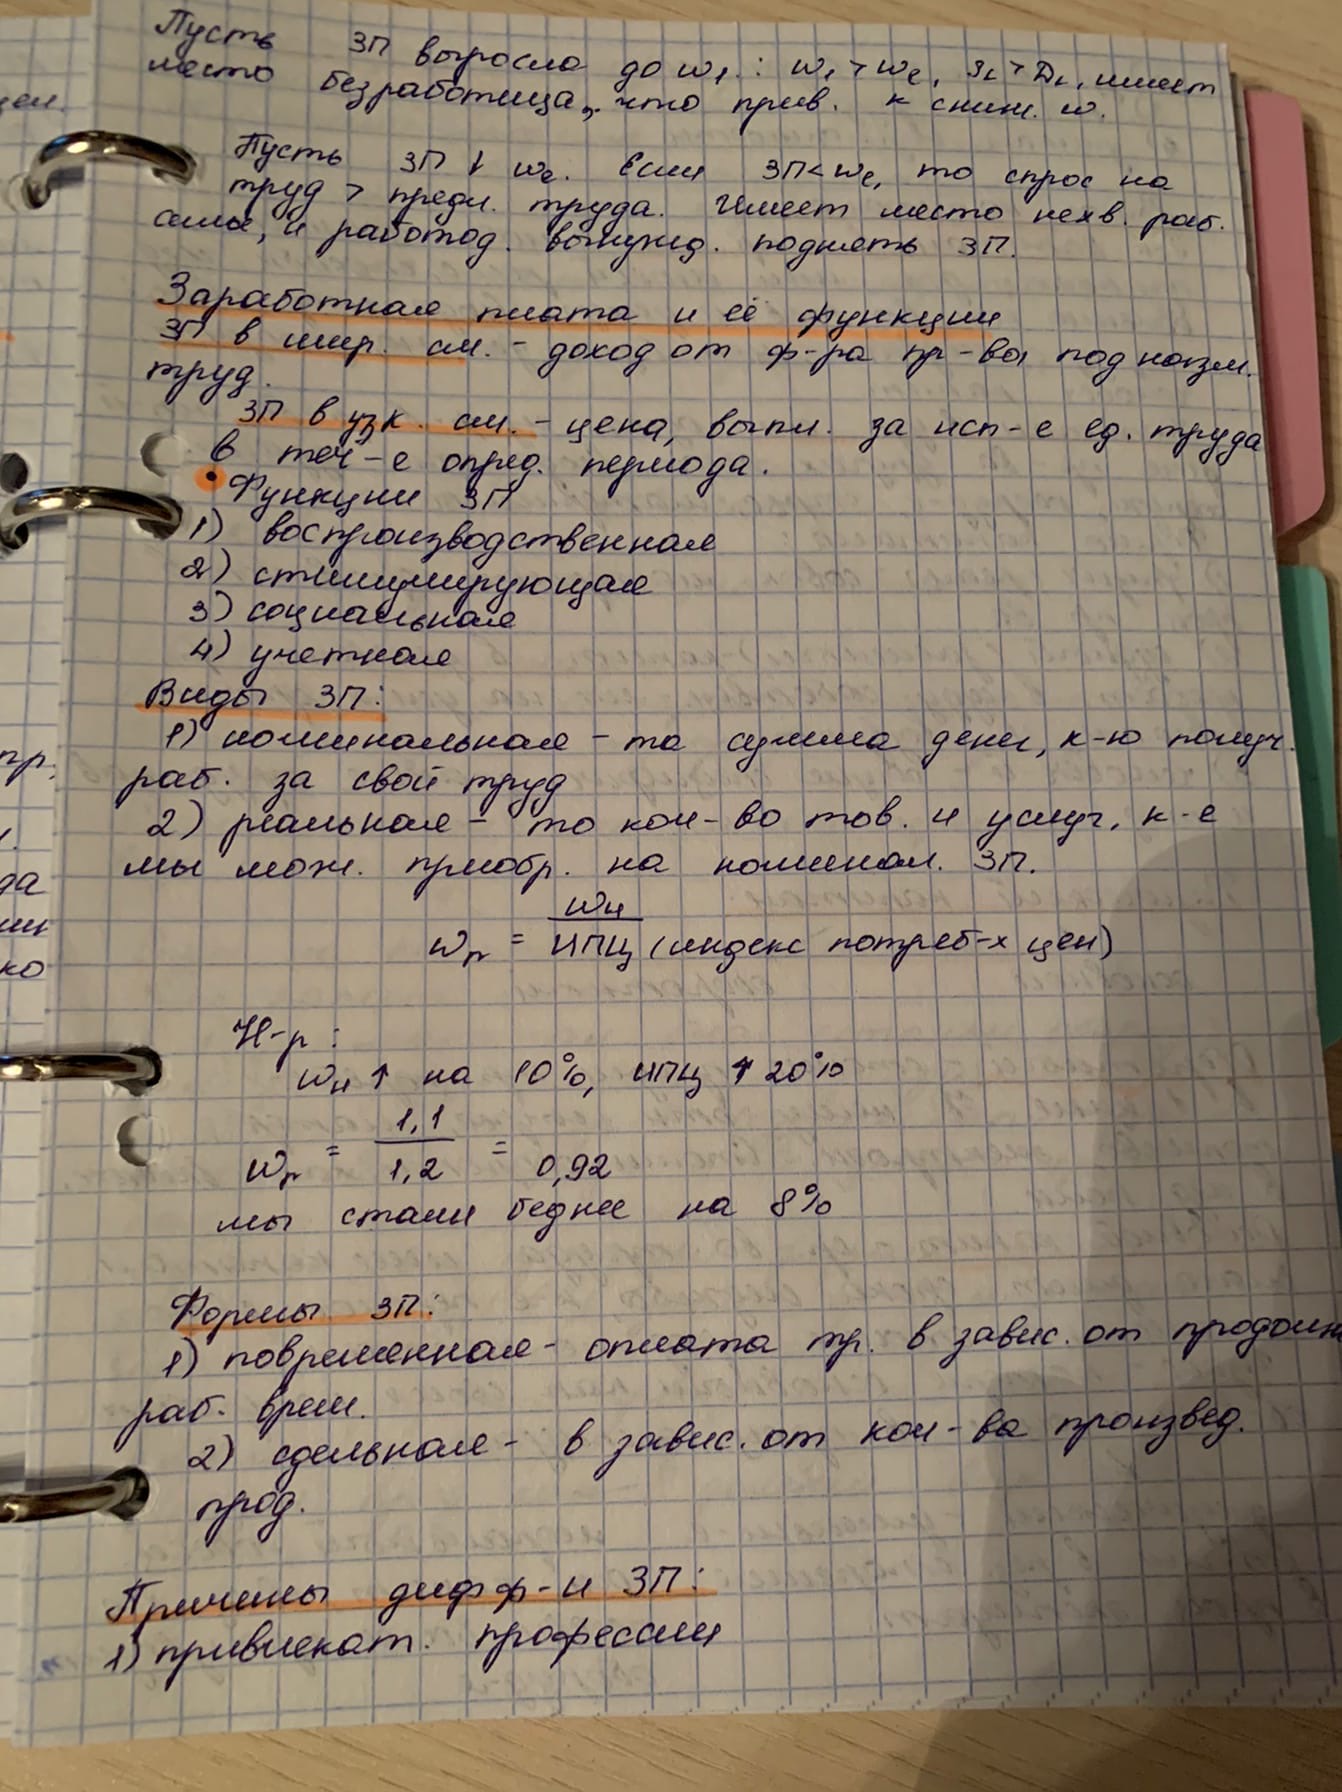 Пусть ЗП выросла до w₁ : w₁ > wₑ, S_L > D_L, имеет
место безработица, что прив. к сниж. w.
Пусть ЗП ↓ wₑ. Если ЗП < wₑ, то спрос на
труд > предл. труда. Имеет место нехв. раб.
силы, и работод. вынужд. поднять ЗП.
Заработная плата и её функции
ЗП в шир. см. - доход от ф-ра пр-ва под назв.
труд.
ЗП в узк. см. - цена, выпл. за исп-е ед. труда
в теч-е опред. периода.
• Функции ЗП
1) воспроизводственная
2) стимулирующая
3) социальная
4) учетная
Виды ЗП:
1) номинальная - та сумма денег, к-ю получ.
раб. за свой труд
2) реальная - то кол-во тов. и услуг, к-е
мы мож. приобр. на номинал. ЗП.
wₚ = wн / ИПЦ (индекс потреб-х цен)
Н-р:
wн ↑ на 10%, ИПЦ ↑ 20%
wₚ = 1,1 / 1,2 = 0,92
мы стали беднее на 8%
Формы ЗП:
1) повременная - оплата тр. в завис. от продолж
раб. врем.
2) сдельная - в завис. от кол-ва произвед.
прод.
Причины дифф-и ЗП:
1) привлекат. профессии